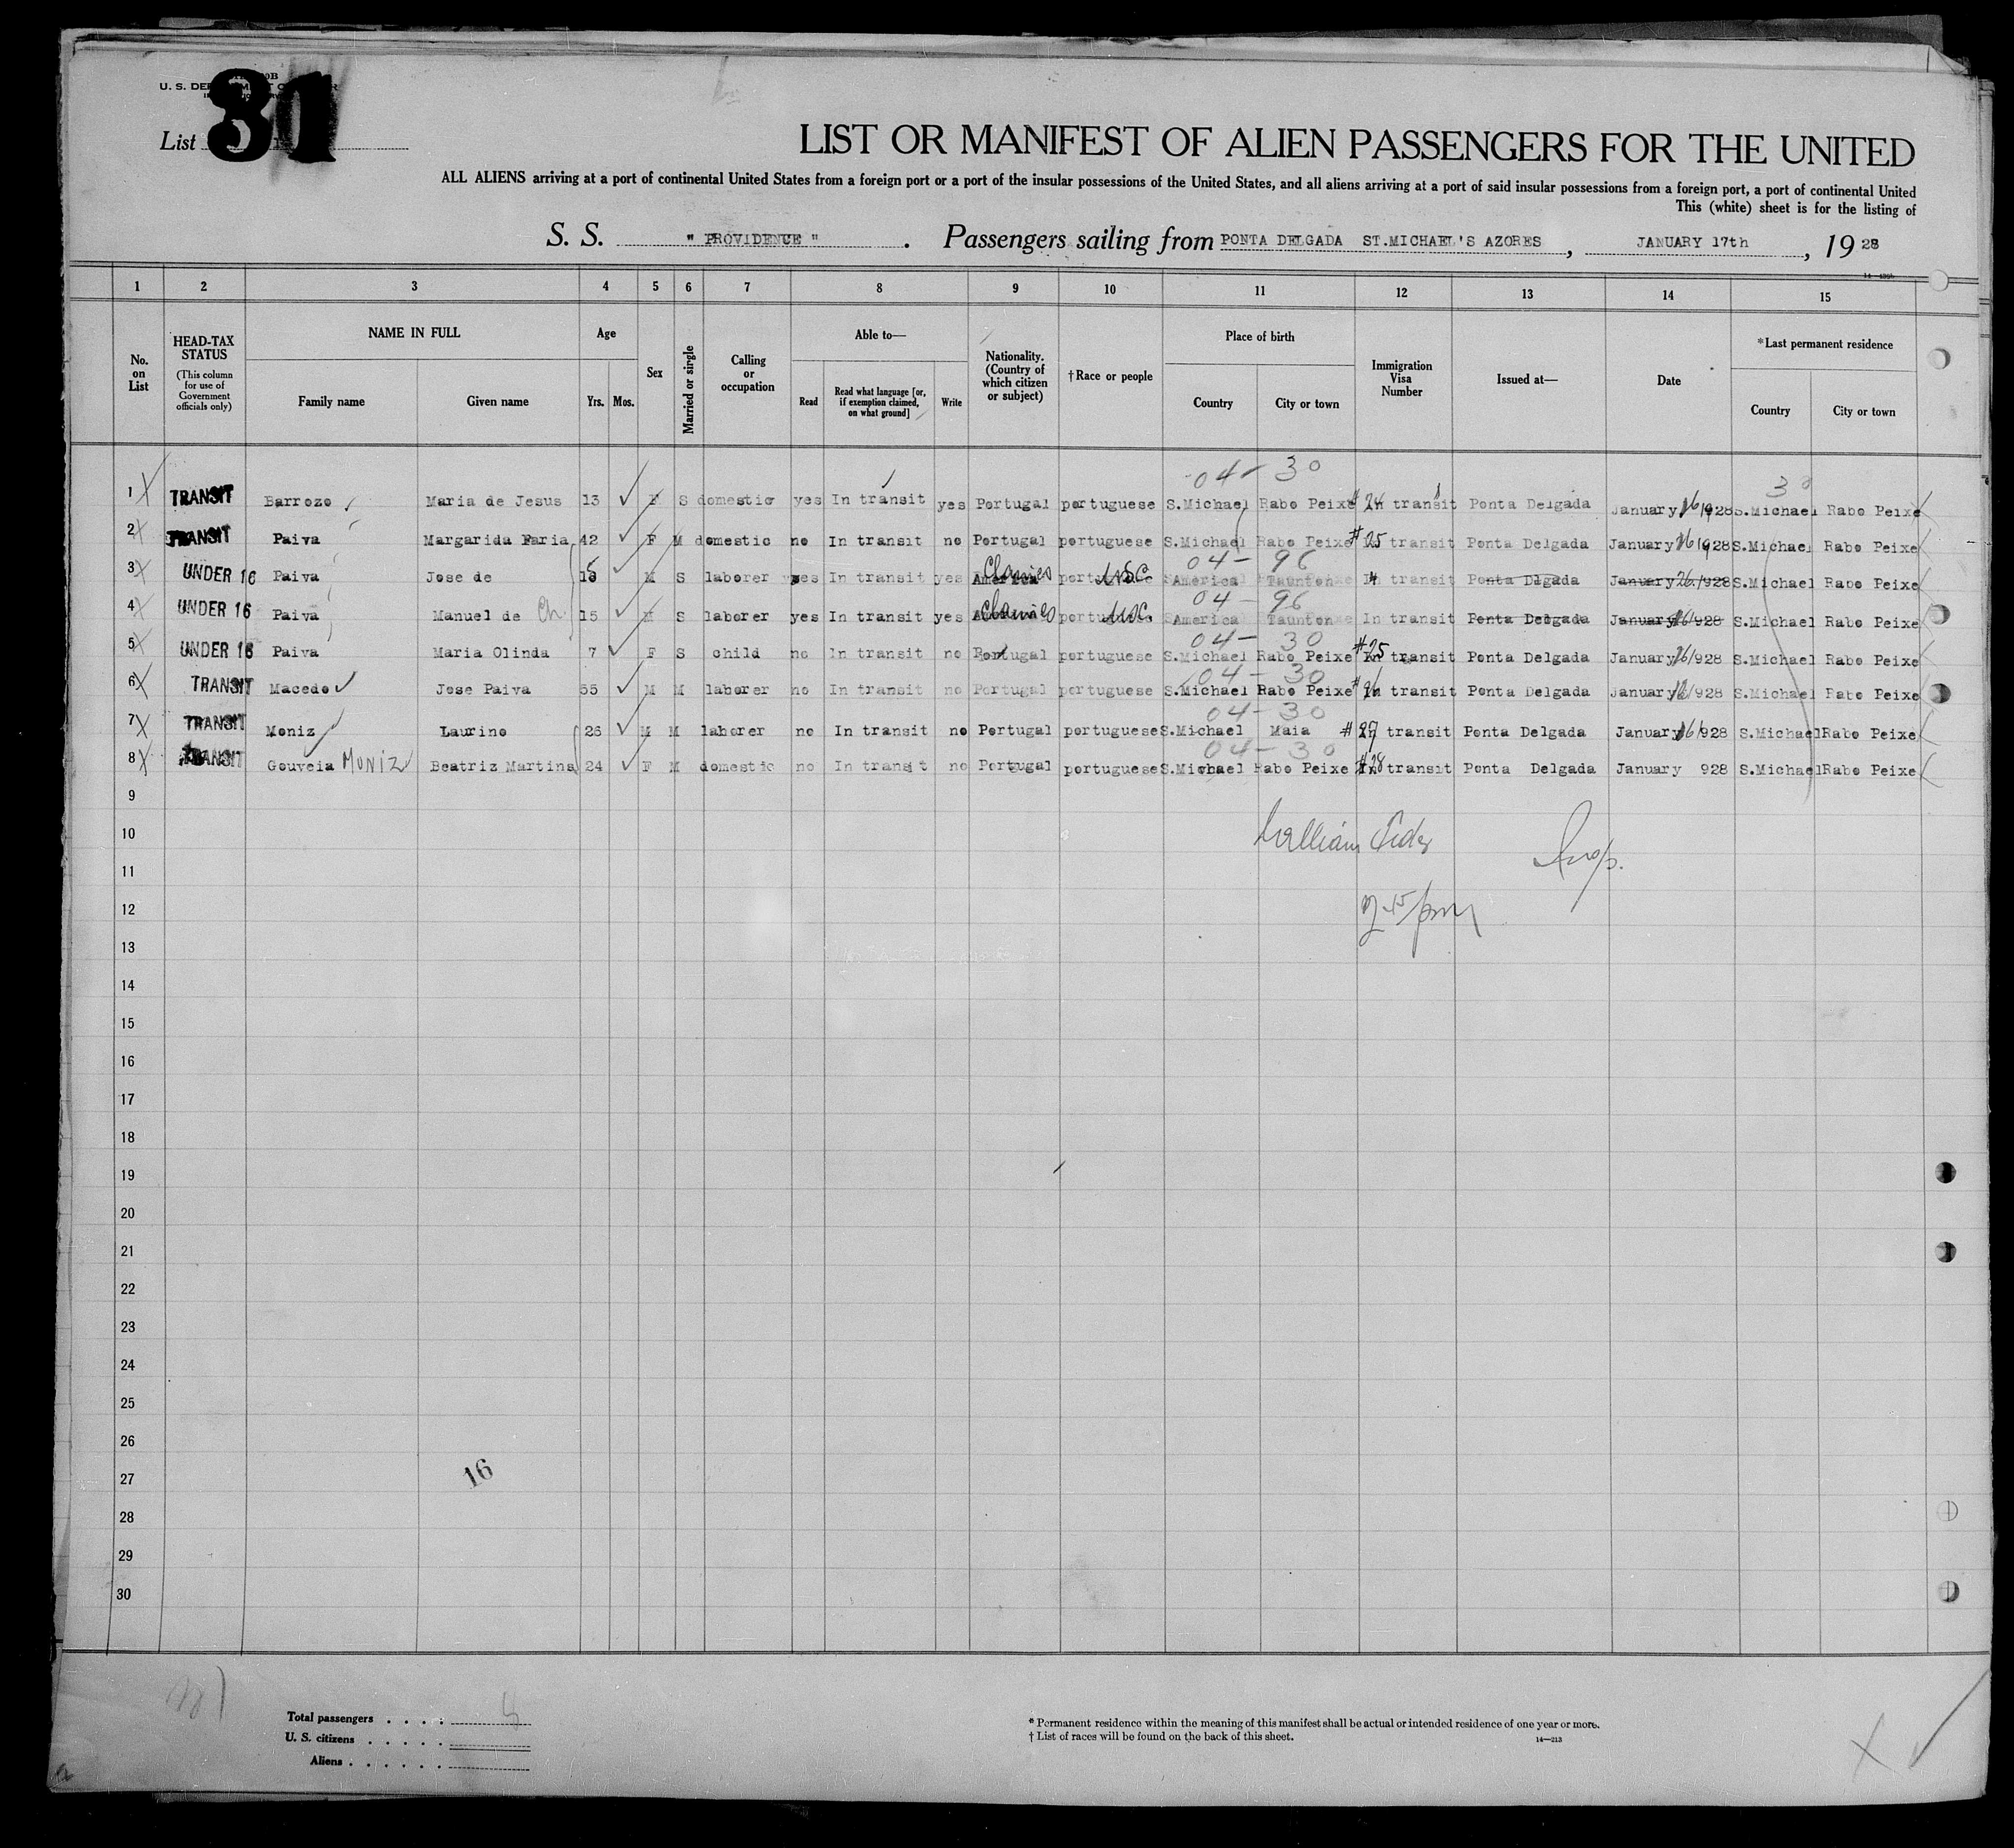 U. S. DEPARTMENT OF LABOR
31
List
LIST OR MANIFEST OF ALIEN PASSENGERS FOR THE UNITED
ALL ALIENS arriving at a port of continental United States from a foreign port or a port of the insular possessions of the United States, and all aliens arriving at a port of said insular possessions from a foreign port, a port of continental United
This (white) sheet is for the listing of
S. S. " PROVIDENCE " . Passengers sailing from PONTA DELGADA ST.MICHAEL'S AZORES , JANUARY 17th , 19 28
1 2 3 4 5 6 7 8 9 10 11 12 13 14 15
No. on List
HEAD-TAX STATUS (This column for use of Government officials only)
NAME IN FULL Family name Given name
Age Yrs. Mos.
Sex
Married or single
Calling or occupation
Able to— Read Read what language [or, if exemption claimed, on what ground] Write
Nationality. (Country of which citizen or subject)
†Race or people
Place of birth Country City or town
Immigration Visa Number
Issued at—
Date
*Last permanent residence Country City or town
04- 30
30
1 TRANSIT Barrozo Maria de Jesus 13 F S domestic yes In transit yes Portugal portuguese S.Michael Rabo Peixe #24 In transit Ponta Delgada January 16 1928 S.Michael Rabo Peixe
2 TRANSIT Paiva Margarida Faria 42 F M domestic no In transit no Portugal portuguese S.Michael Rabo Peixe #25 In transit Ponta Delgada January 16 1928 S.Michael Rabo Peixe
04- 96
3 UNDER 16 Paiva Jose de 15 M S laborer yes In transit yes America Claims portuguese USC America Taunton In transit Ponta Dlgada January 26/928 S.Michael Rabo Peixe
04- 96
4 UNDER 16 Paiva Manuel de Ch 15 M S laborer yes In transit yes America Claims portuguese USC America Taunton In transit Ponta Delgada January 16/928 S.Michael Rabo Peixe
04- 30
5 UNDER 16 Paiva Maria Olinda 7 F S child no In transit no Portugal portuguese S.Michael Rabo Peixe #25 In transit Ponta Delgada January 16/928 S.Michael Rabo Peixe
04- 30
6 TRANSIT Macedo Jose Paiva 55 M M laborer no In transit no Portugal portuguese S.Michael Rabo Peixe #26 In transit Ponta Delgada January 16/928 S.Michael Rabo Peixe
04- 30
7 TRANSIT Moniz Laurino 26 M M laborer no In transit no Portugal portuguese S.Michael Maia #27 In transit Ponta Delgada January 16/928 S.Michael Rabo Peixe
04- 30
8 TRANSIT Gouveia MONIZ Beatriz Martins 24 F M domestic no In transit no Portugal portuguese S.Michael Rabo Peixe #28 In transit Ponta Delgada January 928 S.Michael Rabo Peixe
9
10 William
11 Insp.
12 2 45 pm
13
14
15
16
17
18
19
20
21
22
23
24
25
26
27 16
28
29
30
Total passengers . . . .
U. S. citizens . . . . .
Aliens . . . . . .
* Permanent residence within the meaning of this manifest shall be actual or intended residence of one year or more.
† List of races will be found on the back of this sheet.
14—213